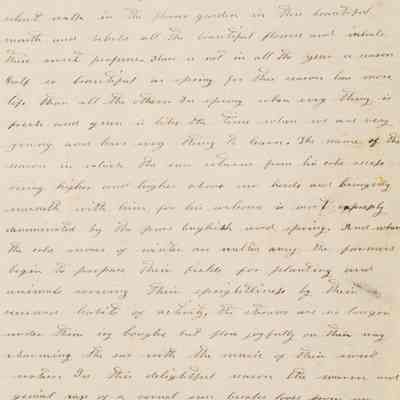 short walk in the flower garden in this beautiful
month and behold all the beautiful flowers and inhale
their sweet perfumes. There is not in all the year a season
half so beautiful as spring for this season has more
life than all the others. In spring when every thing is
fresh and green it likes the time when we are very
young and have every thing to learn. The name of the
season in which the sun returns from his
rising higher and higher above our heads and bringing
warmth with him, for his welcome is most
denominated by the pure english word spring. And when
the cold snows of winter are melted away the farmers
begin to prepare their fields for planting and
animals their sprightliness by their
renewed habits of activity, the streams are no longer
under their icy but flow joyfully on their way
charming the ear with the music of their sweet
notes. In this delightful season the warm and
genial rays of a vernal sun